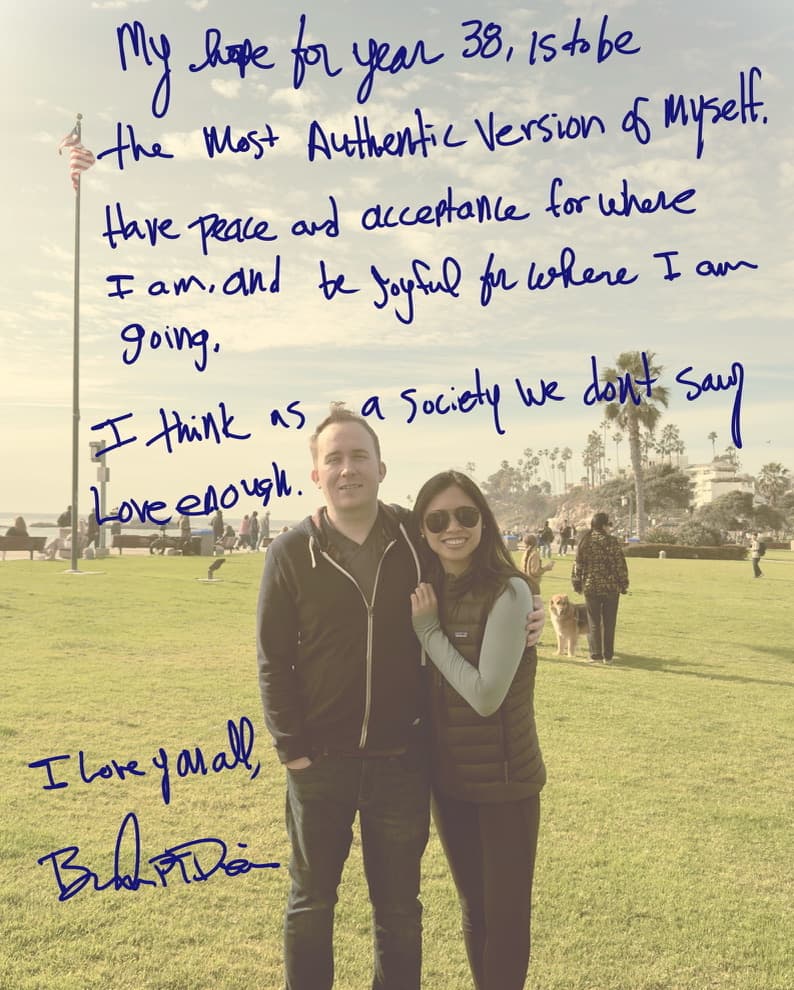 My hope for year 38, is to be
the Most Authentic Version of Myself.
Have peace and acceptance for where
I am, and be Joyful for where I am
going.
I think as a Society we don't say
Love enough.
I Love you all,